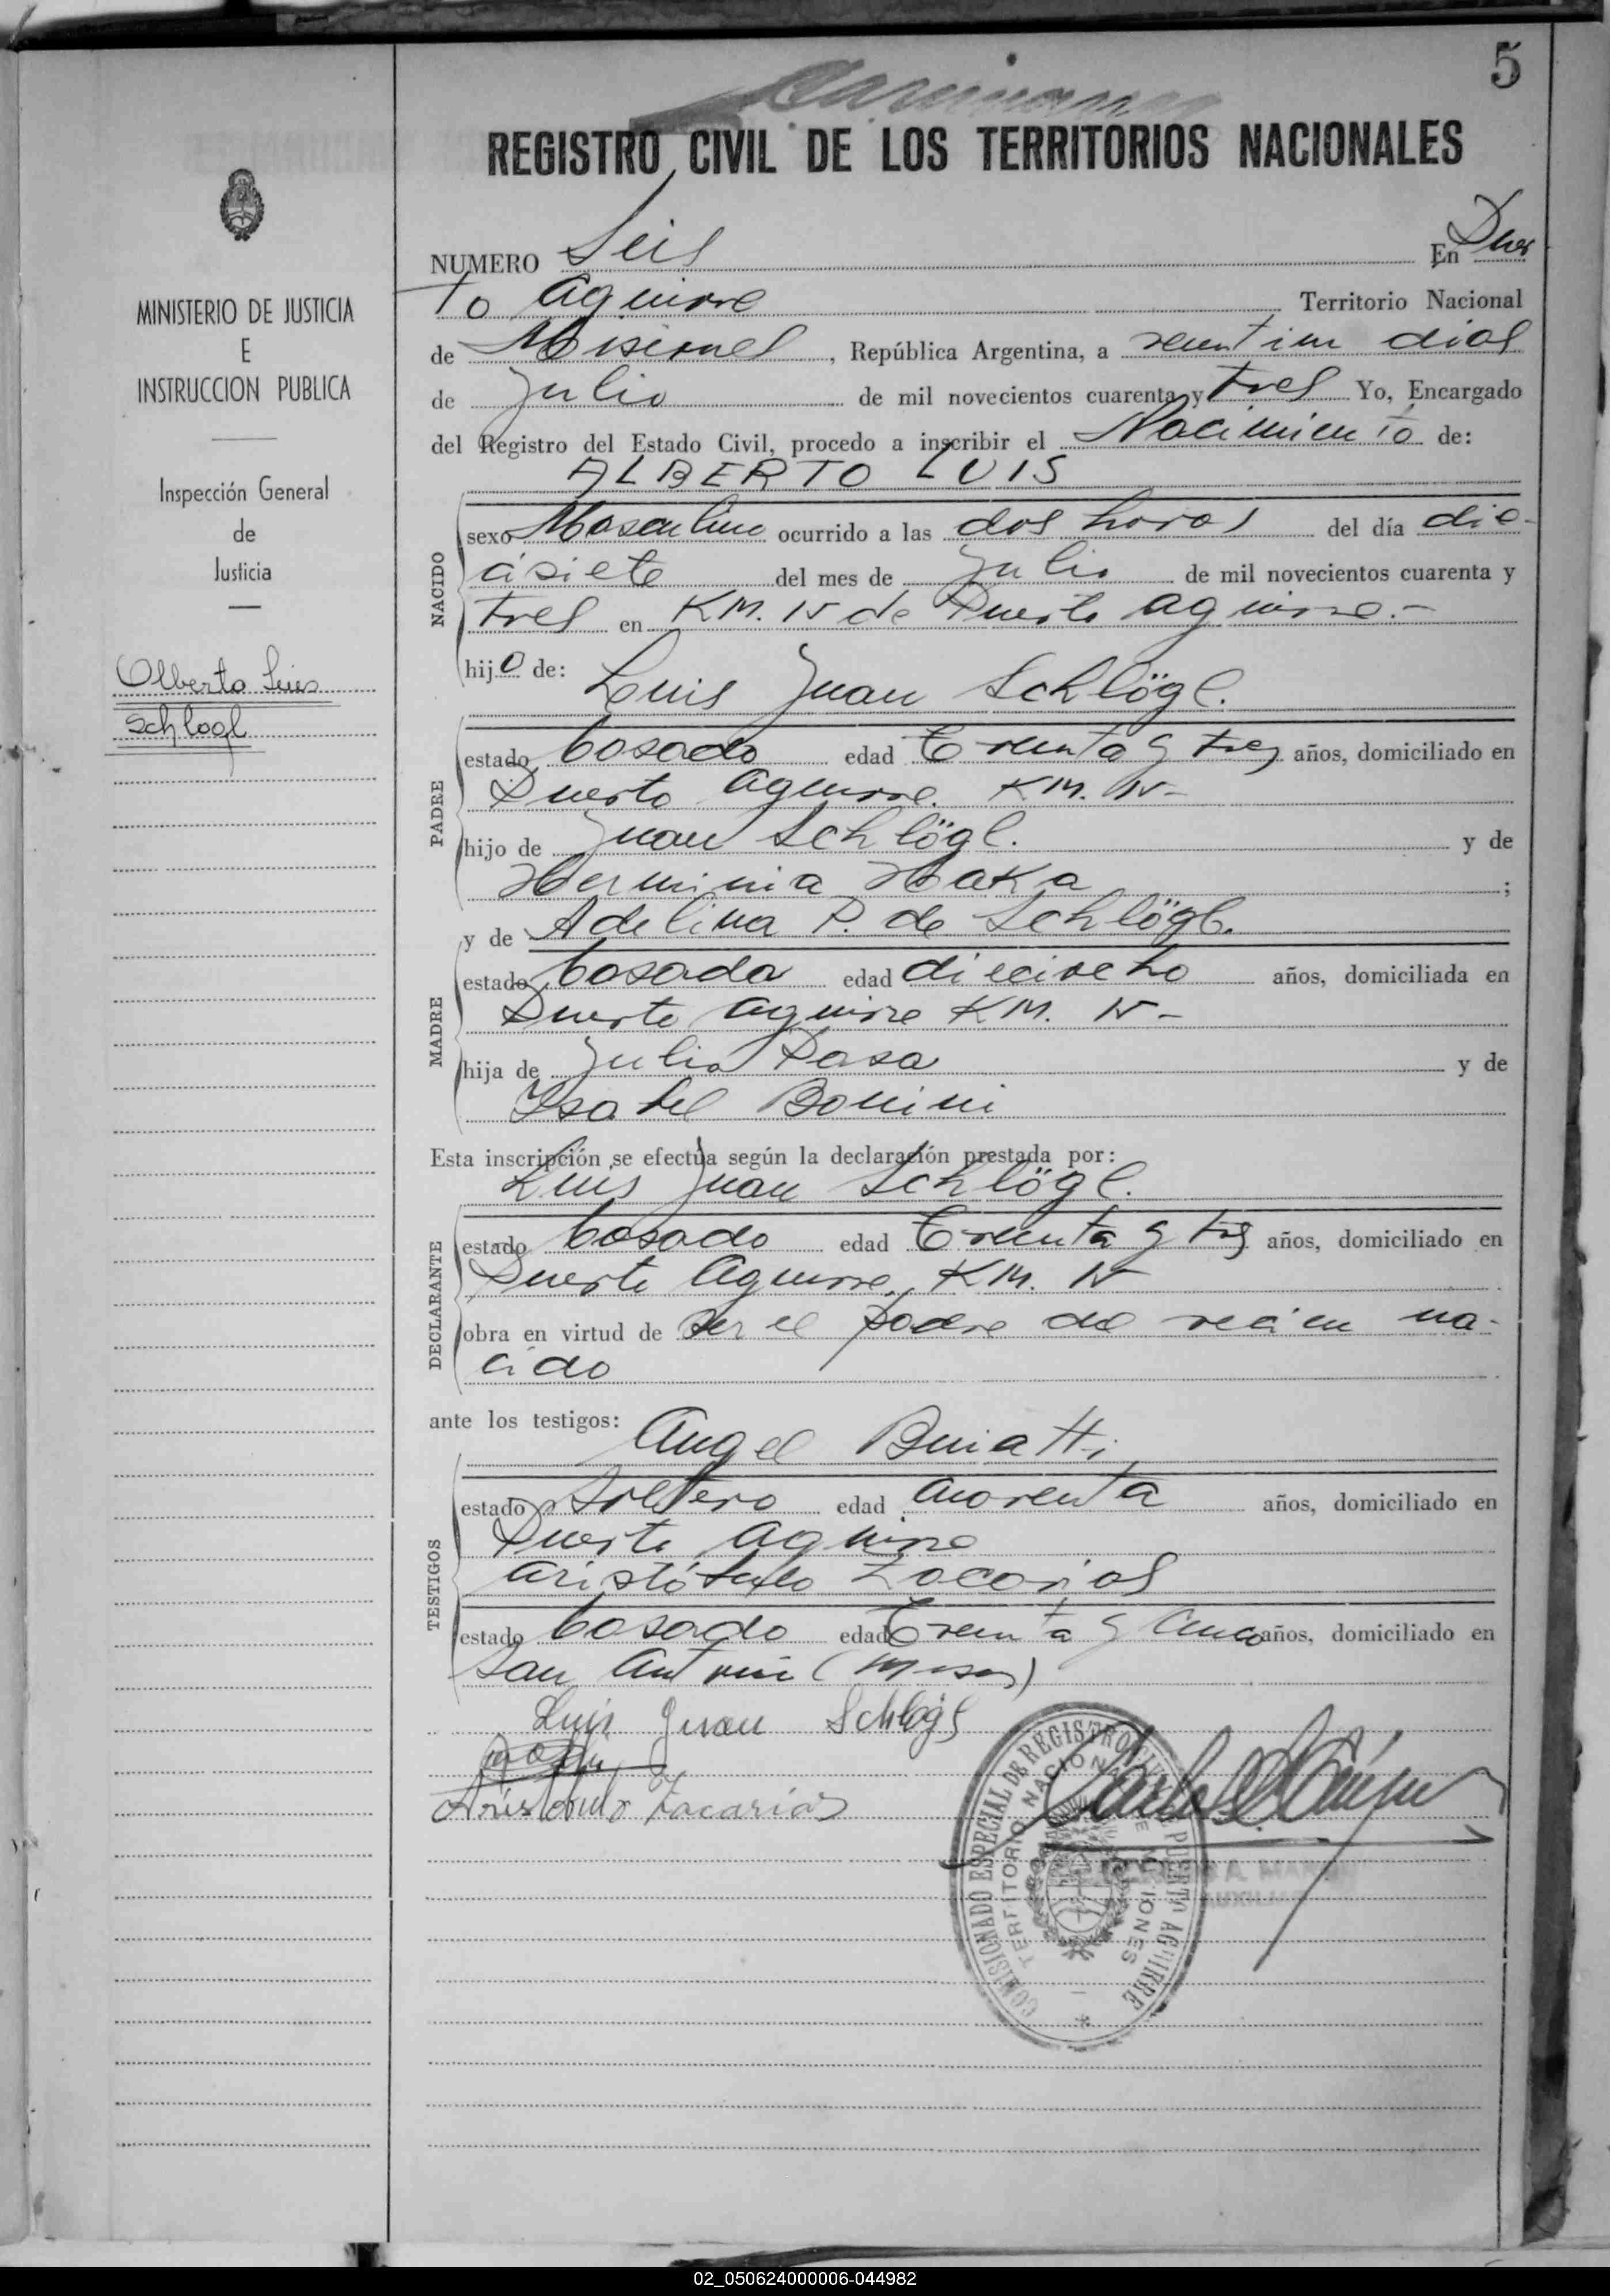 5
REGISTRO CIVIL DE LOS TERRITORIOS NACIONALES
MINISTERIO DE JUSTICIA
E
INSTRUCCION PUBLICA
Inspección General
de
Justicia
Alberto Luis
Schlogl
NUMERO Seis En Puer
to Aguirre Territorio Nacional
de Misiones, República Argentina, a veintiun dias
de Julio de mil novecientos cuarenta y tres Yo, Encargado
del Registro del Estado Civil, procedo a inscribir el Nacimiento de:
ALBERTO LUIS
NACIDO
sexo Masculino ocurrido a las dos horas del día die-
cisiete del mes de Julio de mil novecientos cuarenta y
tres en KM. 15 de Puerto Aguirre.-
hijo de: Luis Juan Schlögl.
PADRE
estado Casado edad Treinta y tres años, domiciliado en
Puerto Aguirre. KM. 15-
hijo de Juan Schlögl. y de
Herminia Haka;
y de Adelina P. de Schlögl.
MADRE
estado Casada edad dieciocho años, domiciliada en
Puerto Aguirre KM. 15-
hija de Julio Pasa y de
Isabel Bonini
Esta inscripción se efectúa según la declaración prestada por:
Luis Juan Schlögl.
DECLARANTE
estado Casado edad Treinta y tres años, domiciliado en
Puerto Aguirre, KM. 15
obra en virtud de ser el padre del recien na-
cido
ante los testigos: Angel Buiatti
TESTIGOS
estado Soltero edad cuarenta años, domiciliado en
Puerto Aguirre
Aristóbulo Zacarias
estado Casado edad Treinta y cinco años, domiciliado en
San Antonio (Misns)
Luis Juan Schlögl
Aristobulo Zacarias
COMISIONADO ESPECIAL DE REGISTRO CIVIL DE PUERTO AGUIRRE
TERRITORIO NACIONAL DE MISIONES
02_050624000006-044982